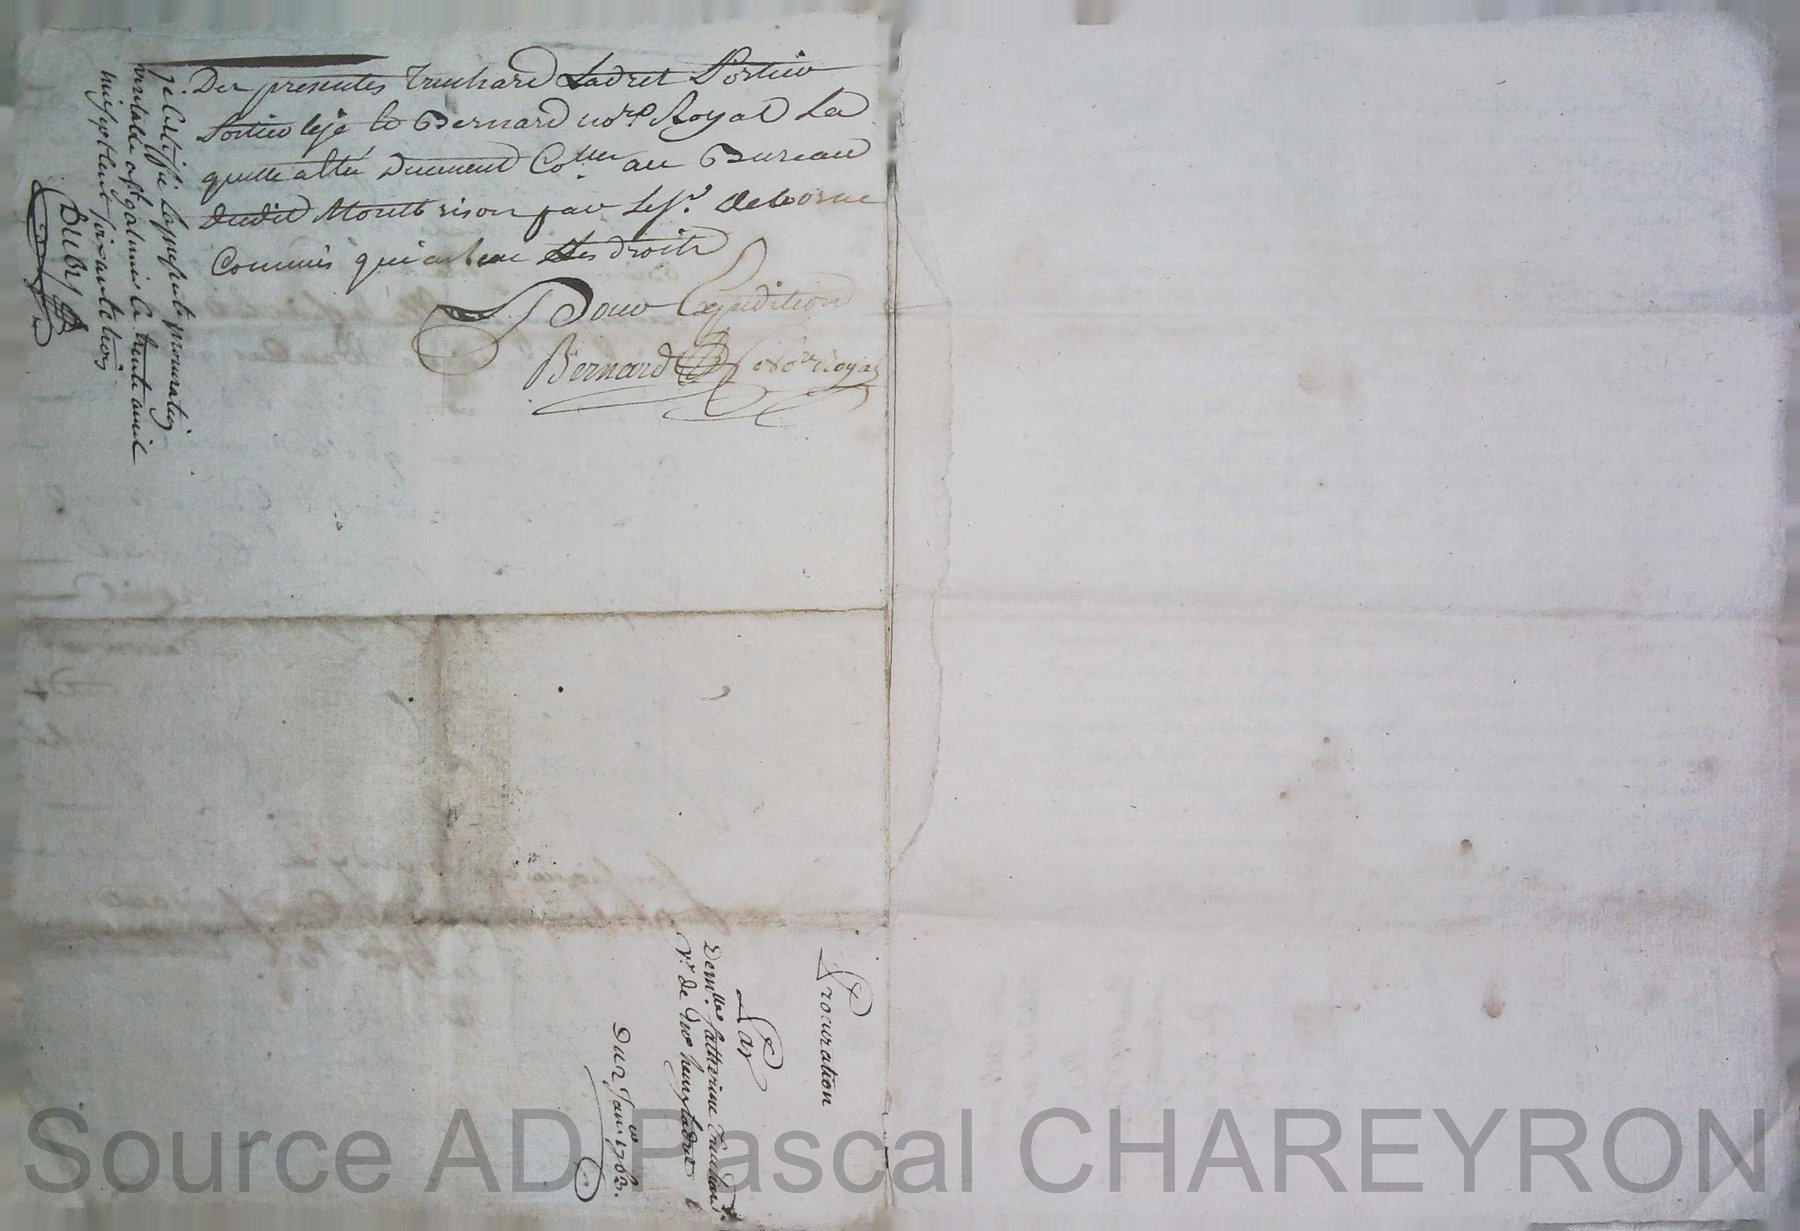 Des presentes Truchard Ladret Portier
Portier Leje & Bernard no.re Royal La
quelle a été Duement Co.llée au Bureau
dudit Montbrison par Le Sr. Deborne
Commis qui a reçu Les droits
Pour Expedition
Bernard no.re Royal
je Certiffie la presente procuration
veritable a st galmier le trente avril
mil sept cent soixante trois
Procuration
Par
Dem.lle Catherine Truchard
v.e de Sr. henry Ladret
Du 2 Janv.er 1763.
Source AD Pascal CHAREYRON